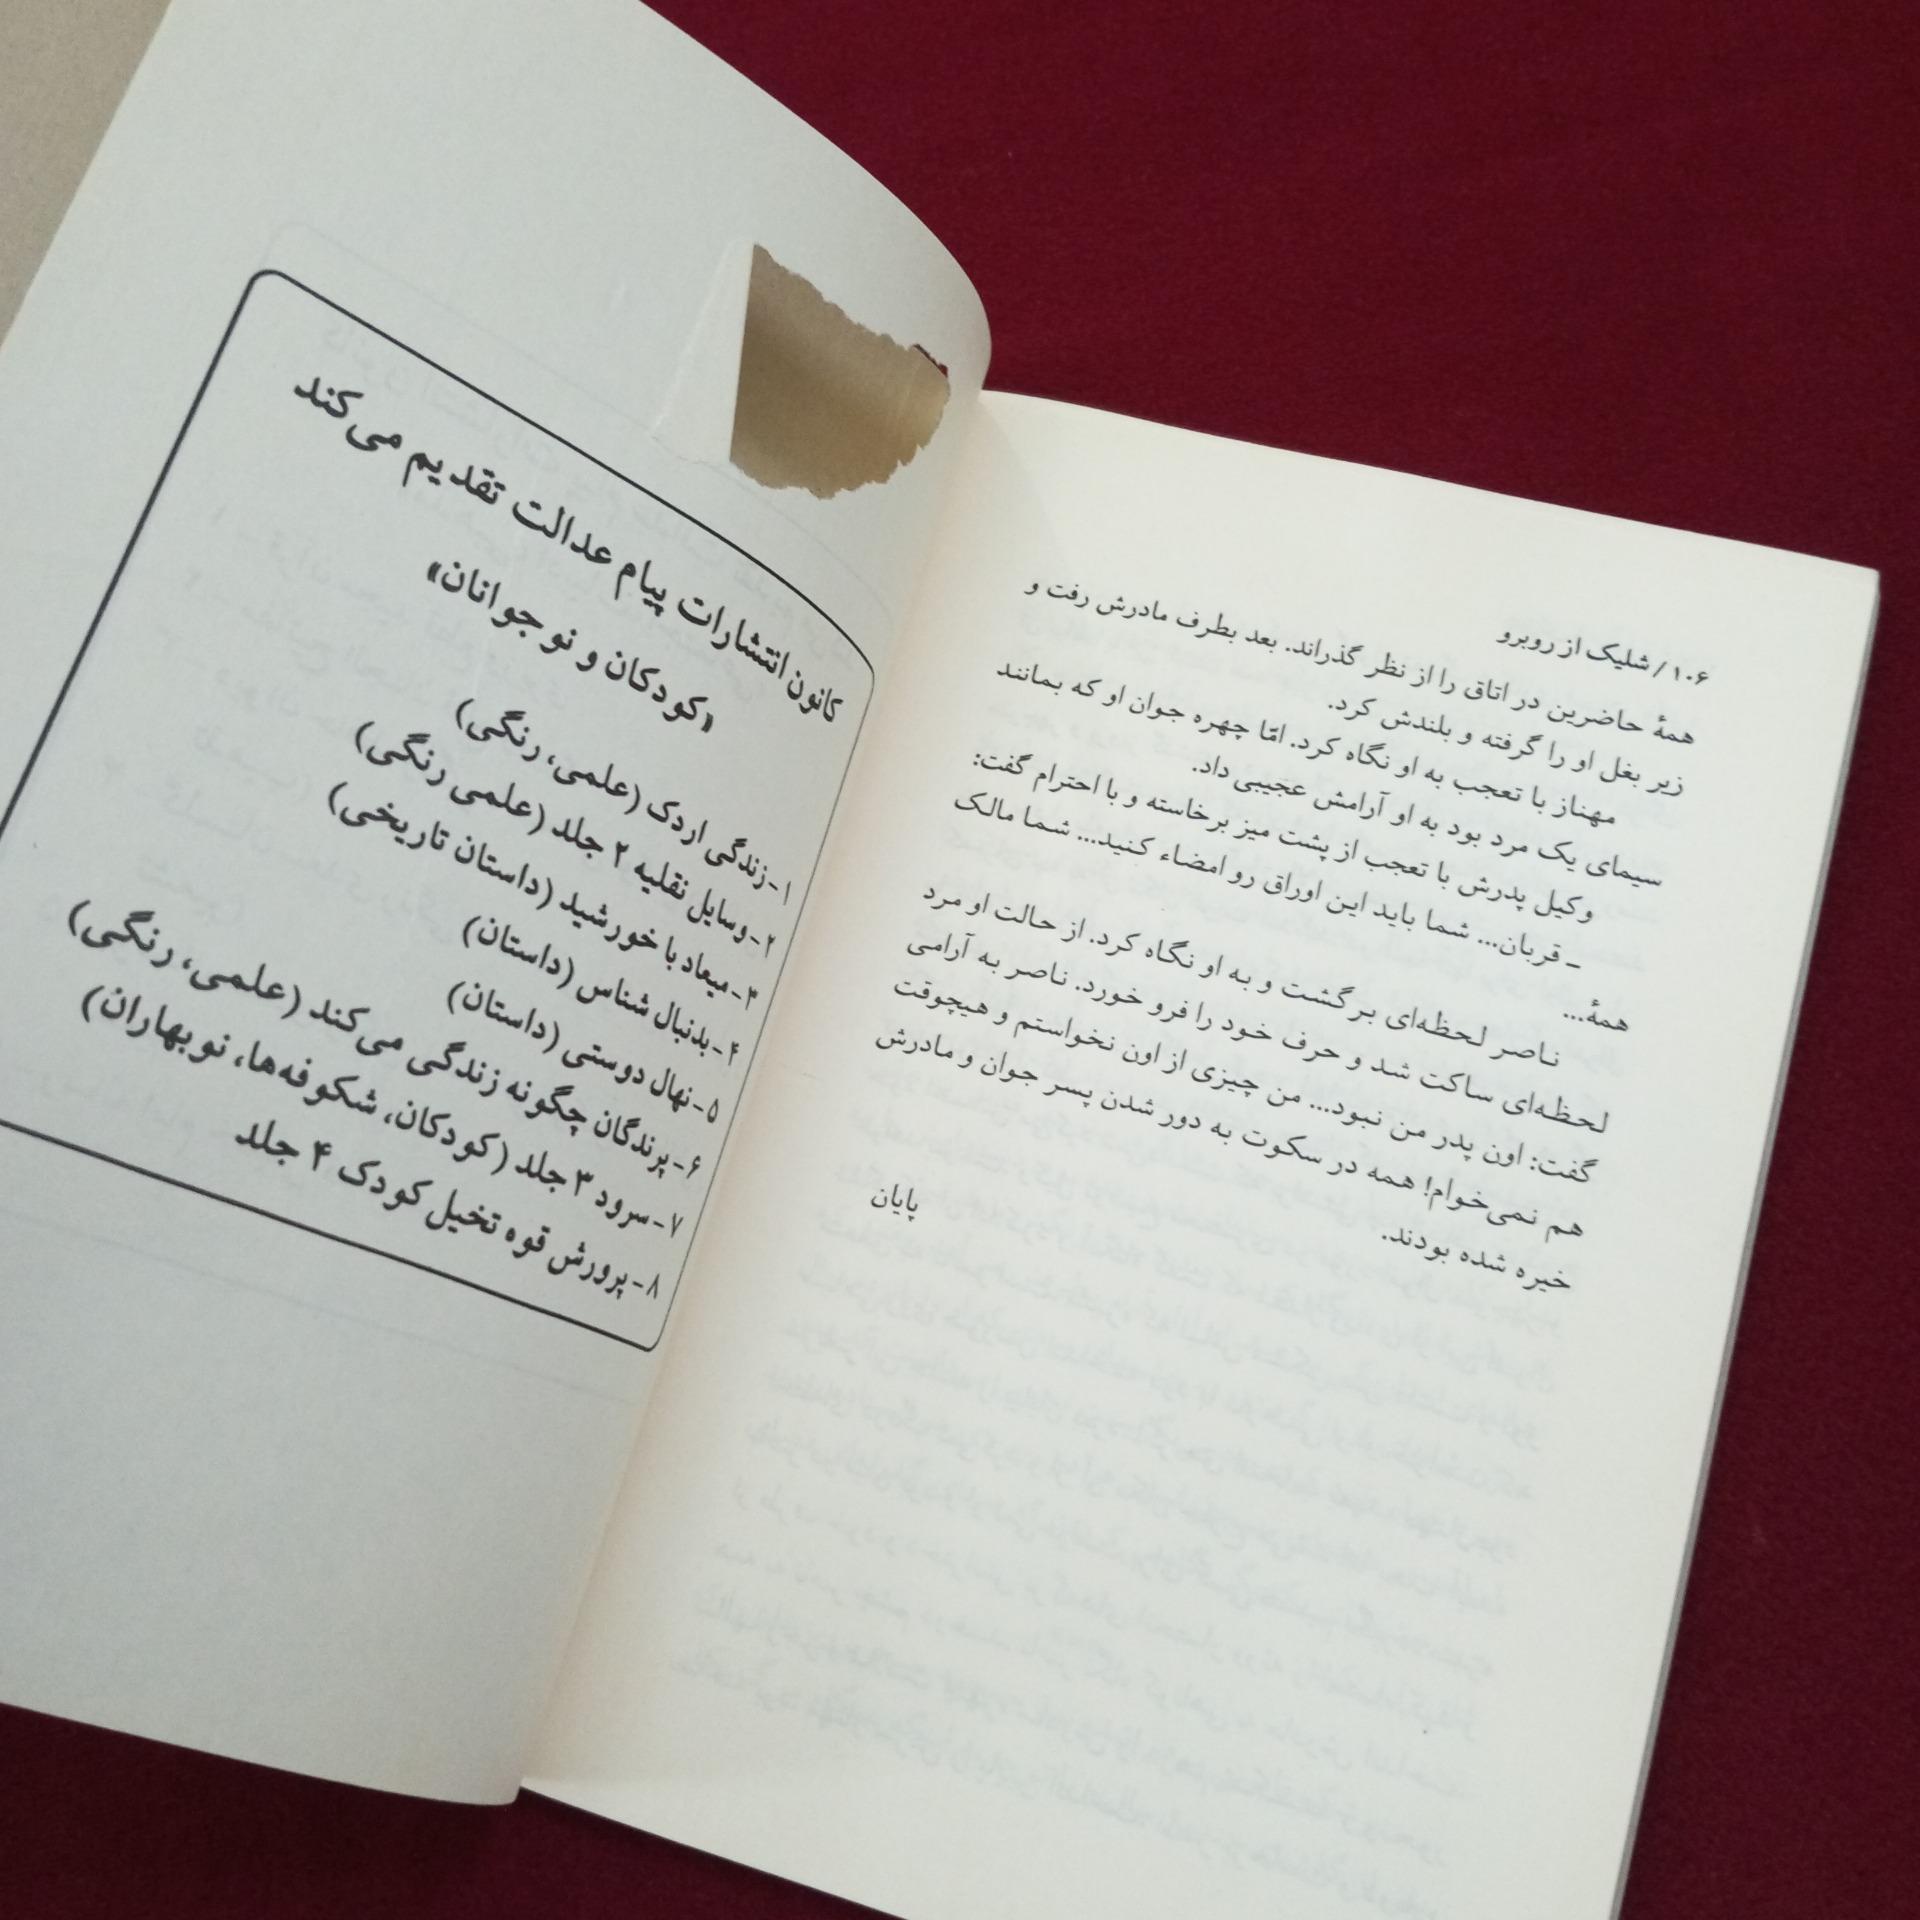 ۱۰۶ / شلیک از روبرو
همهٔ حاضرین در اتاق را از نظر گذراند. بعد بطرف مادرش رفت و
زیر بغل او را گرفته و بلندش کرد.
مهناز با تعجب به او نگاه کرد. امّا چهره جوان او که بمانند
سیمای یک مرد بود به او آرامش عجیبی داد.
وکیل پدرش با تعجب از پشت میز برخاسته و با احترام گفت:
ـ قربان... شما باید این اوراق رو امضاء کنید... شما مالک
همهٔ...
ناصر لحظه‌ای برگشت و به او نگاه کرد. از حالت او مرد
لحظه‌ای ساکت شد و حرف خود را فرو خورد. ناصر به آرامی
گفت: اون پدر من نبود... من چیزی از اون نخواستم و هیچوقت
هم نمی‌خوام! همه در سکوت به دور شدن پسر جوان و مادرش
خیره شده بودند.
پایان
کانون انتشارات پیام عدالت تقدیم می‌کند
«کودکان و نوجوانان»
۱- زندگی اردک (علمی، رنگی)
۲- وسایل نقلیه ۲ جلد (علمی رنگی)
۳- میعاد با خورشید (داستان تاریخی)
۴- بدنبال شناس (داستان)
۵- نهال دوستی (داستان)
۶- پرندگان چگونه زندگی می‌کند (علمی، رنگی)
۷- سرود ۳ جلد (کودکان، شکوفه‌ها، نوبهاران)
۸- پرورش قوه تخیل کودک ۴ جلد